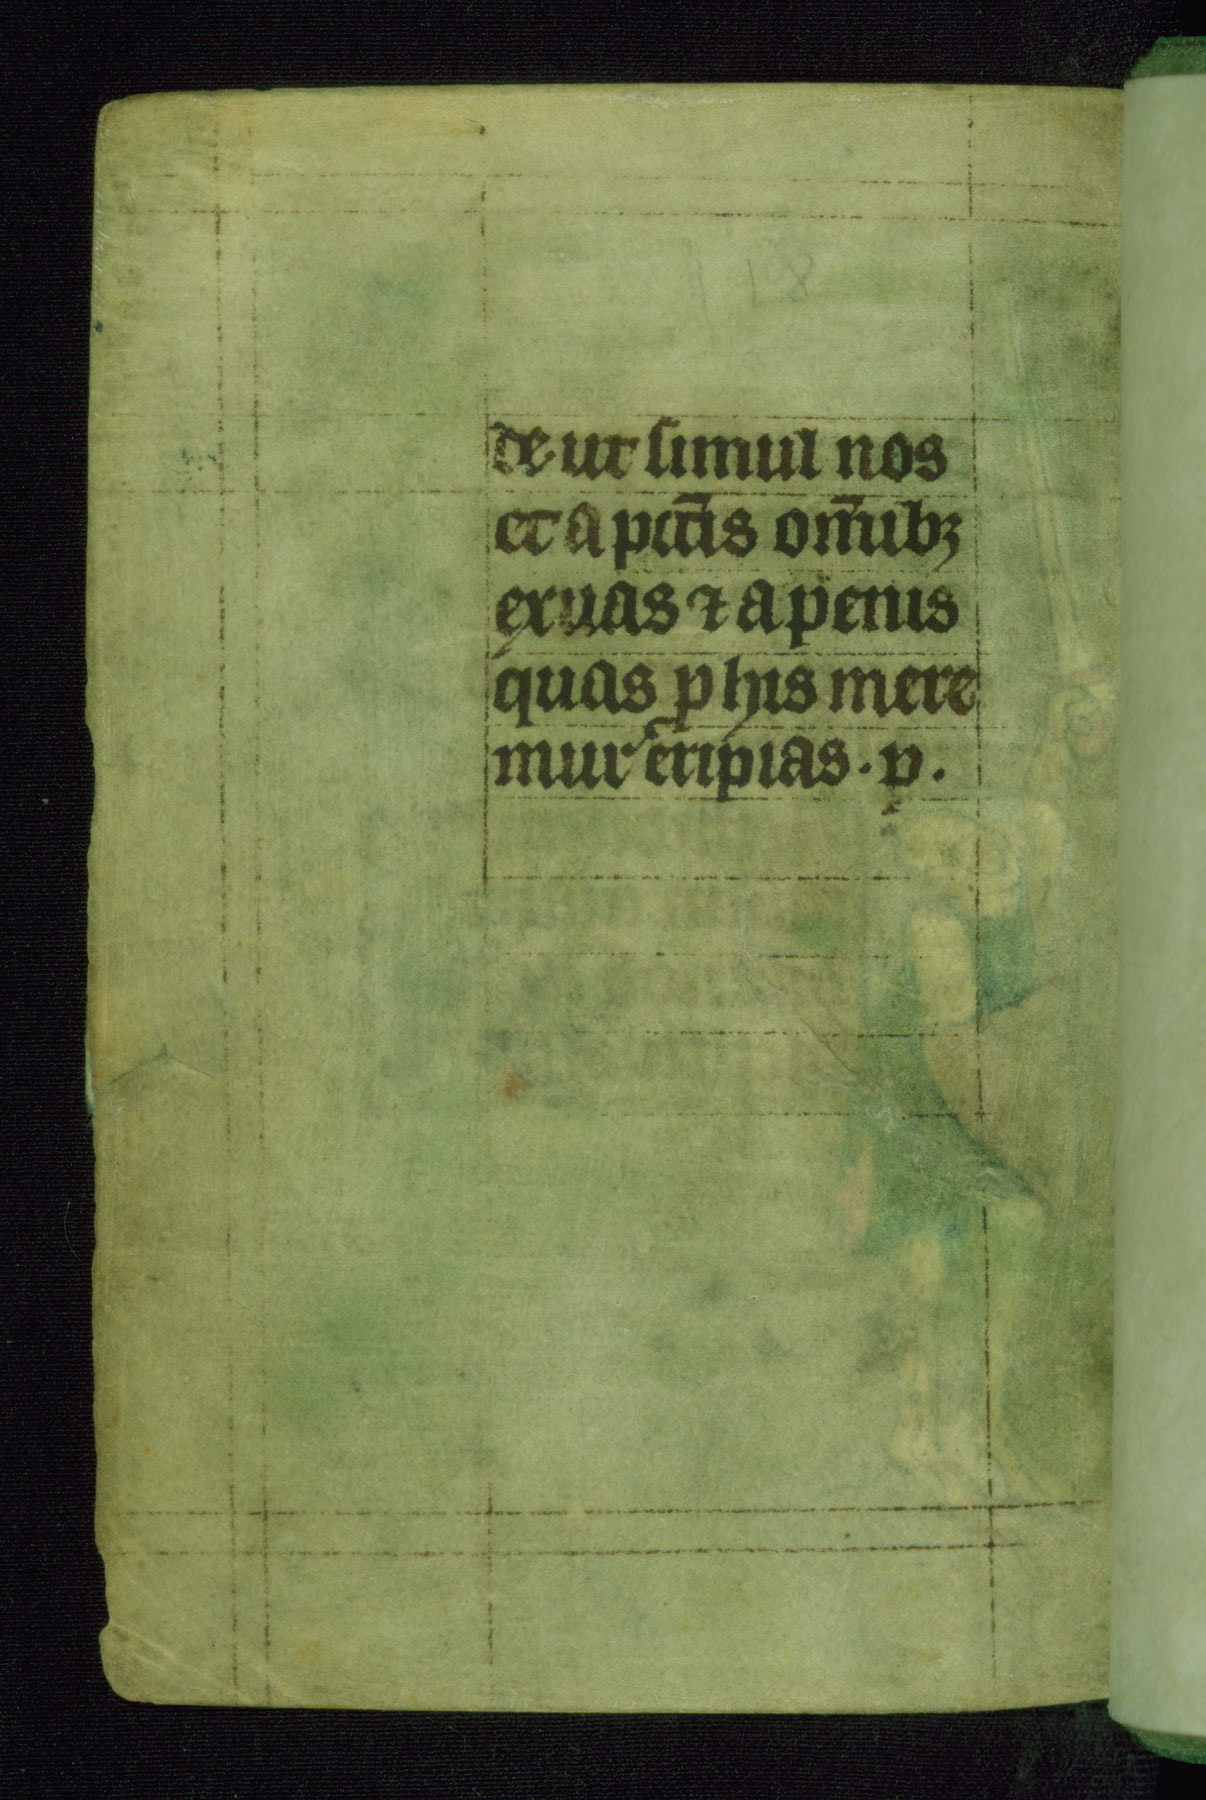 de ut simul nos
et a pctīs om̄ibꝫ
exuas ⁊ a penis
quas p his mere
mur eripias . p .